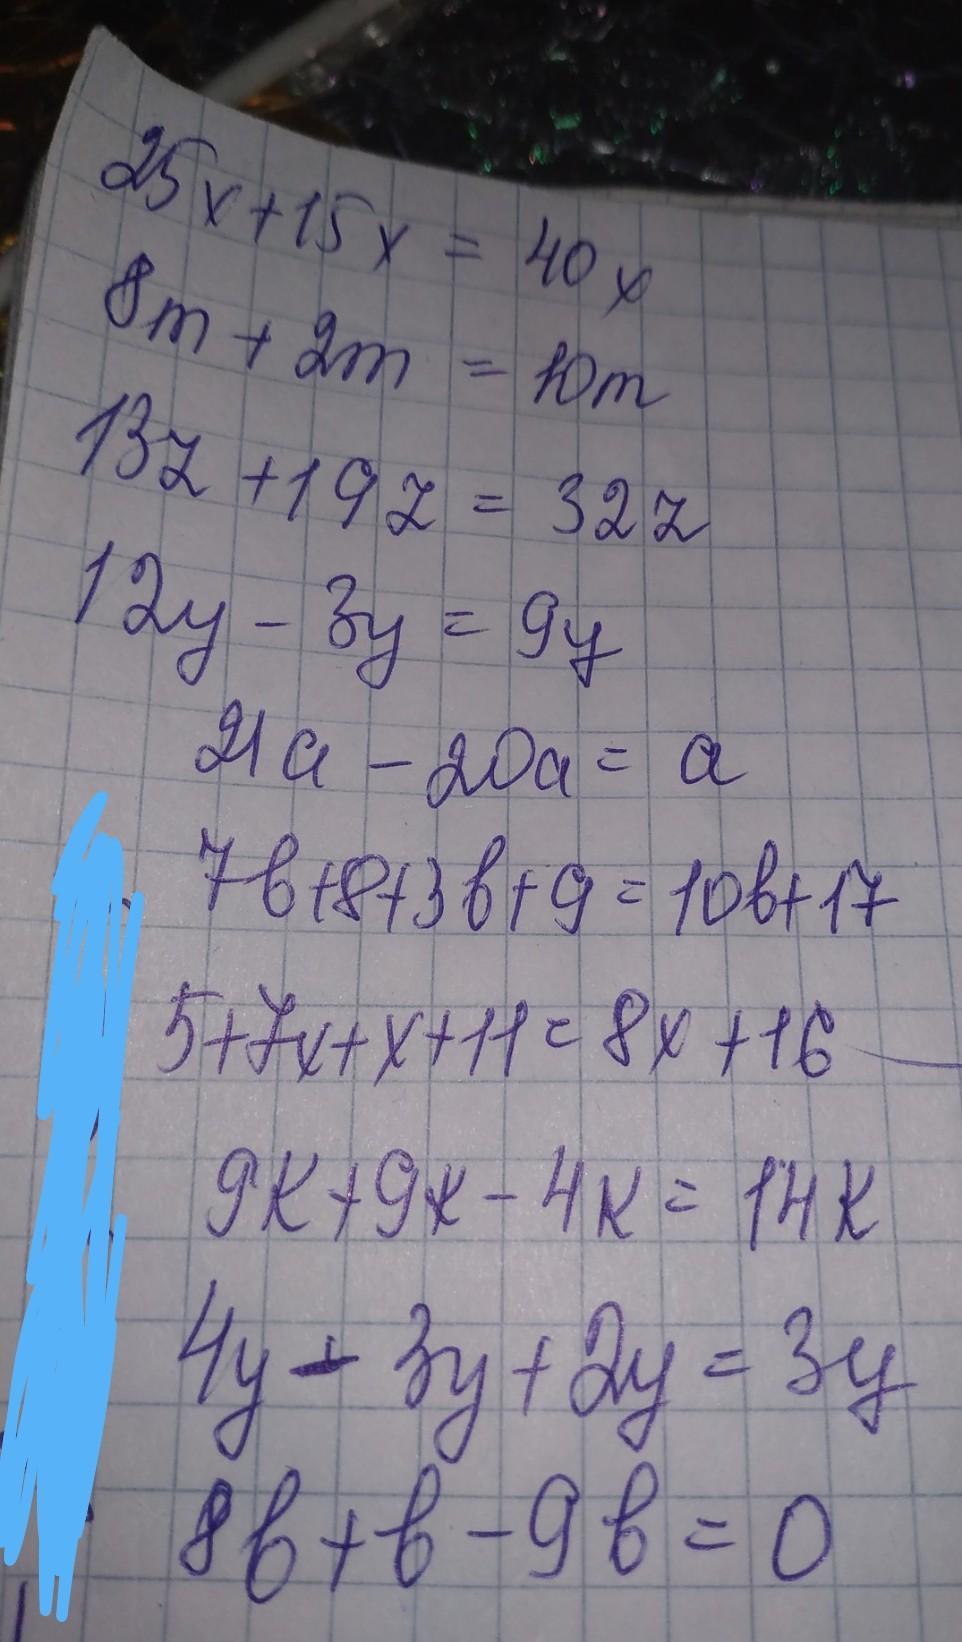 25x+15x = 40x
8m + 2m = 10m
13z + 19z = 32z
12y - 3y = 9y
21a - 20a = a
7b+8+3b+9 = 10b+17
5+7x+x+11 = 8x+16
9k+9k - 4k = 14k
4y - 3y + 2y = 3y
8b + b - 9b = 0